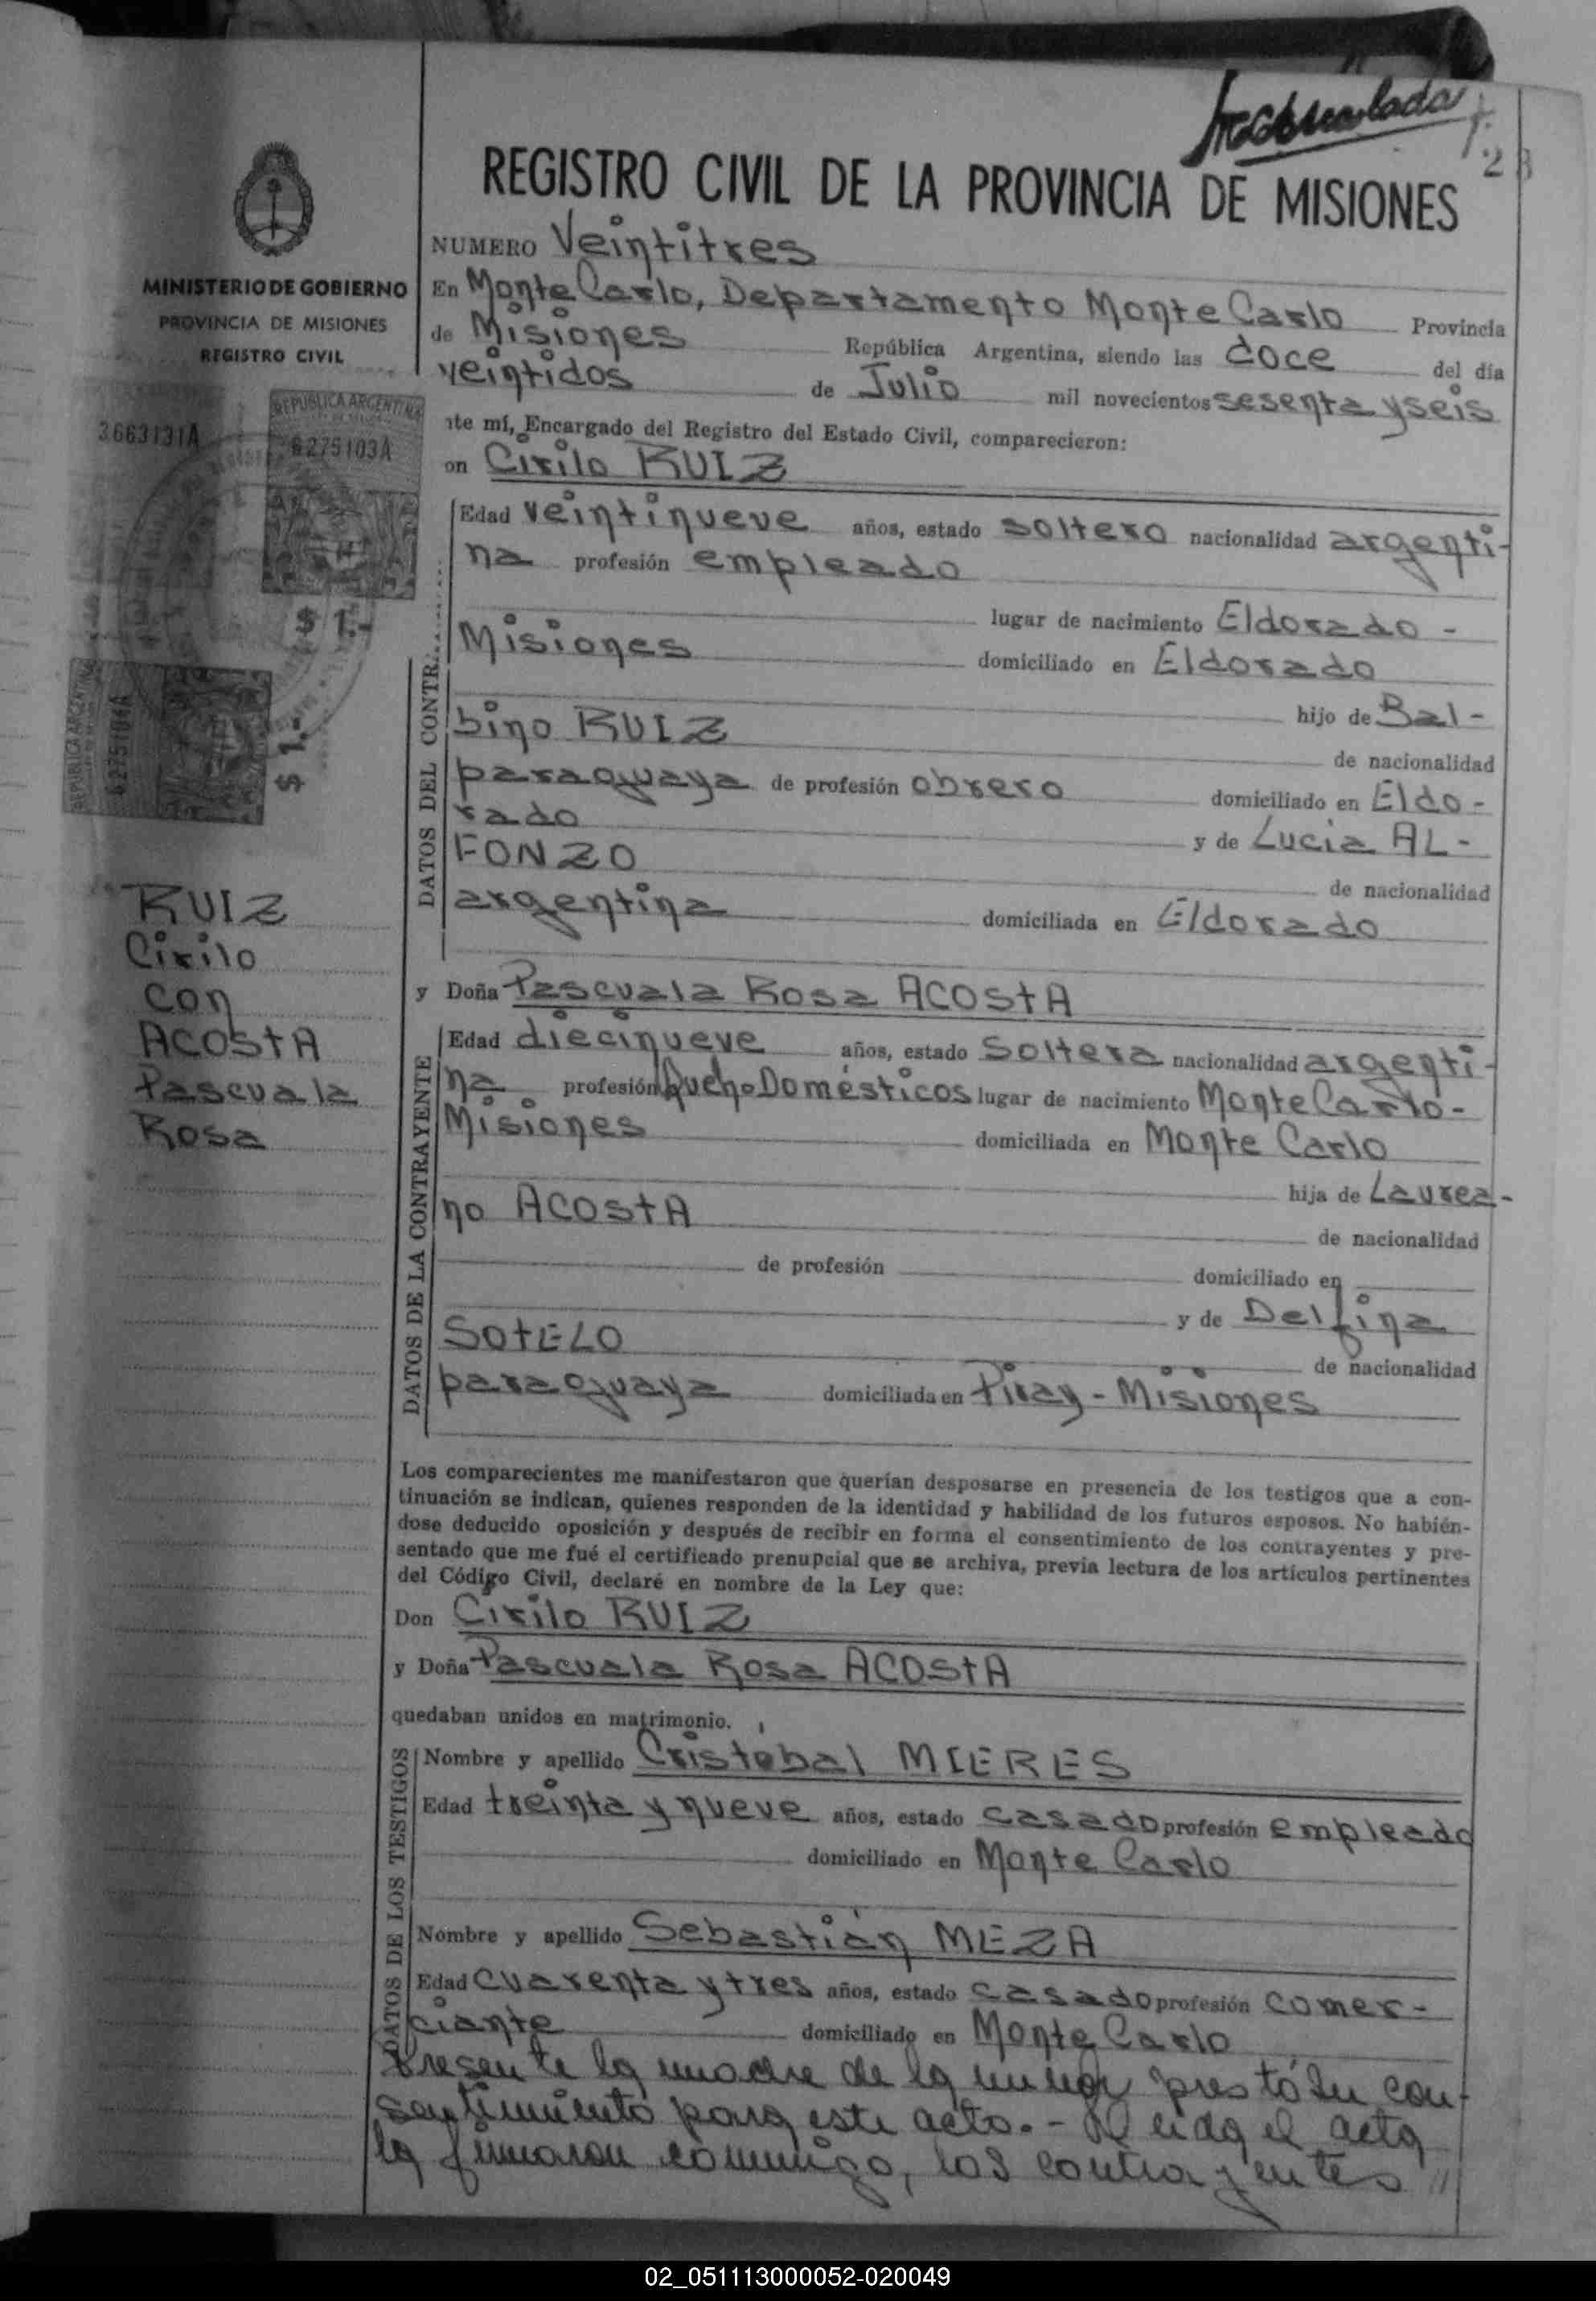 REGISTRO CIVIL DE LA PROVINCIA DE MISIONES
23
MINISTERIO DE GOBIERNO
PROVINCIA DE MISIONES
REGISTRO CIVIL
REPUBLICA ARGENTINA
3663131A
6275103A
$ 1.-
REPUBLICA ARGENTINA
6275104A
$ 1.-
RUIZ
Cirilo
con
ACOStA
Pascuala
Rosa
NUMERO Veintitres
En Monte Carlo, Departamento Monte Carlo Provincia
de Misiones República Argentina, siendo las doce del día
veintidos de Julio mil novecientos sesenta y seis
nte mí, Encargado del Registro del Estado Civil, comparecieron:
on Cirilo RUIZ
DATOS DEL CONTR
Edad veintinueve años, estado soltero nacionalidad argenti-
na profesión empleado
lugar de nacimiento Eldorado -
Misiones domiciliado en Eldorado
hijo de Bal-
bino RUIZ
de nacionalidad
paraguaya de profesión obrero domiciliado en Eldo-
rado
y de Lucia AL-
FONZO
de nacionalidad
argentina domiciliada en Eldorado
y Doña Pascuala Rosa ACOStA
DATOS DE LA CONTRAYENTE
Edad diecinueve años, estado Soltera nacionalidad argenti-
na profesión Queh. Domésticos lugar de nacimiento Monte Carlo-
Misiones domiciliada en Monte Carlo
hija de Laurea-
no ACOStA
de nacionalidad
de profesión domiciliado en
y de Delfina
SOtELO
de nacionalidad
paraguaya domiciliada en Piray - Misiones
Los comparecientes me manifestaron que querían desposarse en presencia de los testigos que a con-
tinuación se indican, quienes responden de la identidad y habilidad de los futuros esposos. No habién-
dose deducido oposición y después de recibir en forma el consentimiento de los contrayentes y pre-
sentado que me fué el certificado prenupcial que se archiva, previa lectura de los artículos pertinentes
del Código Civil, declaré en nombre de la Ley que:
Don Cirilo RUIZ
y Doña Pascuala Rosa ACOStA
quedaban unidos en matrimonio.
DATOS DE LOS TESTIGOS
Nombre y apellido Cristobal MIERES
Edad treinta y nueve años, estado casado profesión empleado
domiciliado en Monte Carlo
Nombre y apellido Sebastián MEZA
Edad cuarenta y tres años, estado casado profesión comer-
ciante domiciliado en Monte Carlo
Presente la madre de la menor prestó su con-
sentimiento para este acto. - Leida el acta
la firmaron conmigo, los contrayentes //
02_051113000052-020049